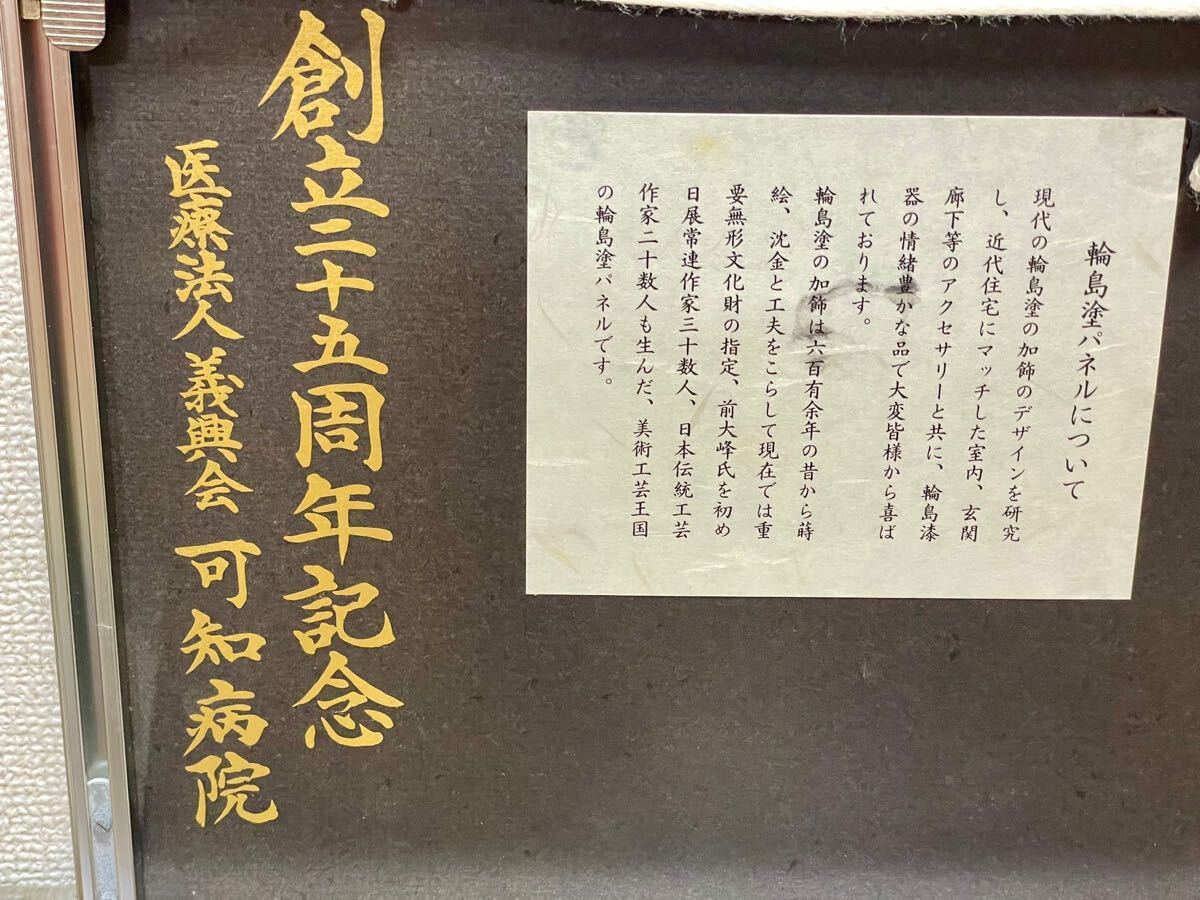 輪島塗パネルについて
現代の輪島塗の加飾のデザインを研究
し、近代住宅にマッチした室内、玄関
廊下等のアクセサリーと共に、輪島漆
器の情緒豊かな品で大変皆様から喜ば
れております。
輪島塗の加飾は六百有余年の昔から蒔
絵、沈金と工夫をこらして現在では重
要無形文化財の指定、前大峰氏を初め
日展常連作家三十数人、日本伝統工芸
作家二十数人も生んだ、美術工芸王国
の輪島塗パネルです。
創立二十五周年記念
医療法人義興会 可知病院